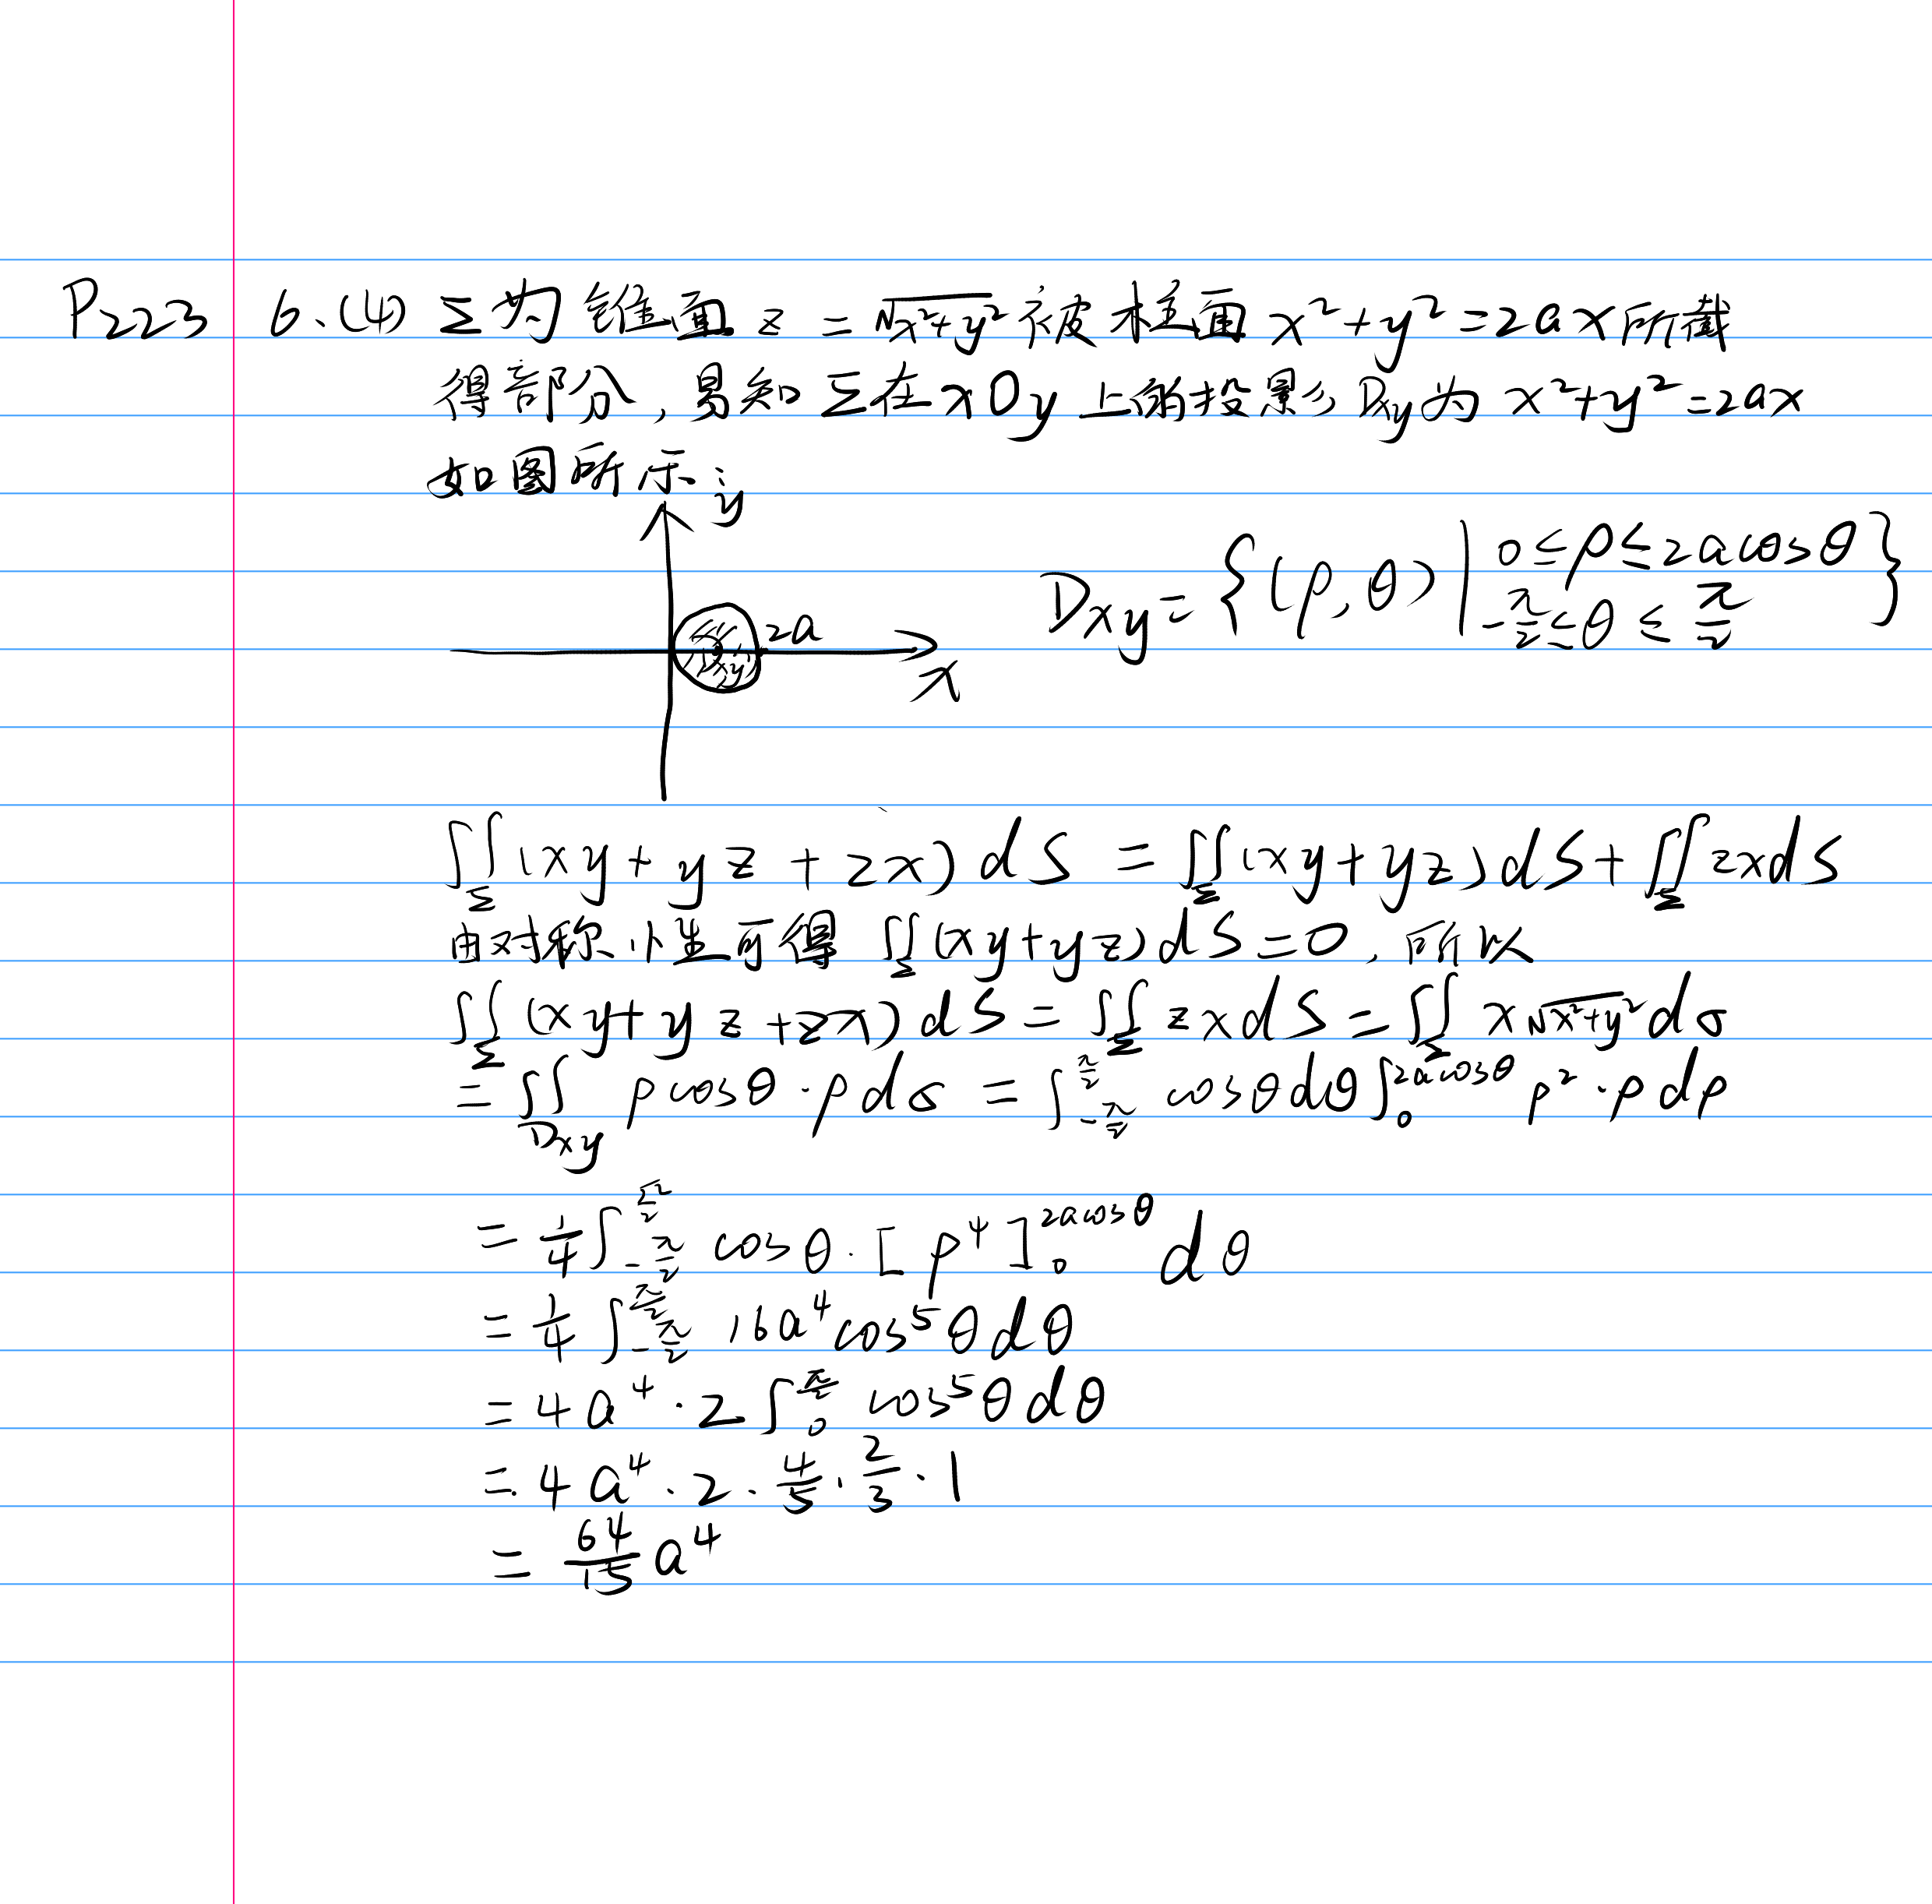 P223 6.(4) Σ为锥面 z = √(x²+y²) 被柱面 x²+y²=2ax 所截
得部分,易知Σ在xOy上的投影 Dxy为 x²+y²=2ax
如图所示:
y
Dxy = {(ρ,θ) | 0≤ρ≤2acosθ
-π/2≤θ≤π/2}
2a
Dxy
x
∬_Σ (xy+yz+zx)dS = ∬_Σ (xy+yz)dS + ∬_Σ zxdS
由对称性可得 ∬_Σ (xy+yz)dS=0,所以
∬_Σ (xy+yz+zx)dS = ∬_Σ zxdS = ∬_Σ x√(x²+y²)dσ
= ∬_Dxy ρcosθ·ρdσ = ∫_{-π/2}^{π/2} cosθdθ ∫_0^{2acosθ} ρ²·ρdρ
= 1/4 ∫_{-π/2}^{π/2} cosθ·[ρ⁴]_0^{2acosθ} dθ
= 1/4 ∫_{-π/2}^{π/2} 16a⁴cos⁵θdθ
= 4a⁴·2∫_0^{π/2} cos⁵θdθ
= 4a⁴·2·4/5·2/3·1
= 64/15 a⁴